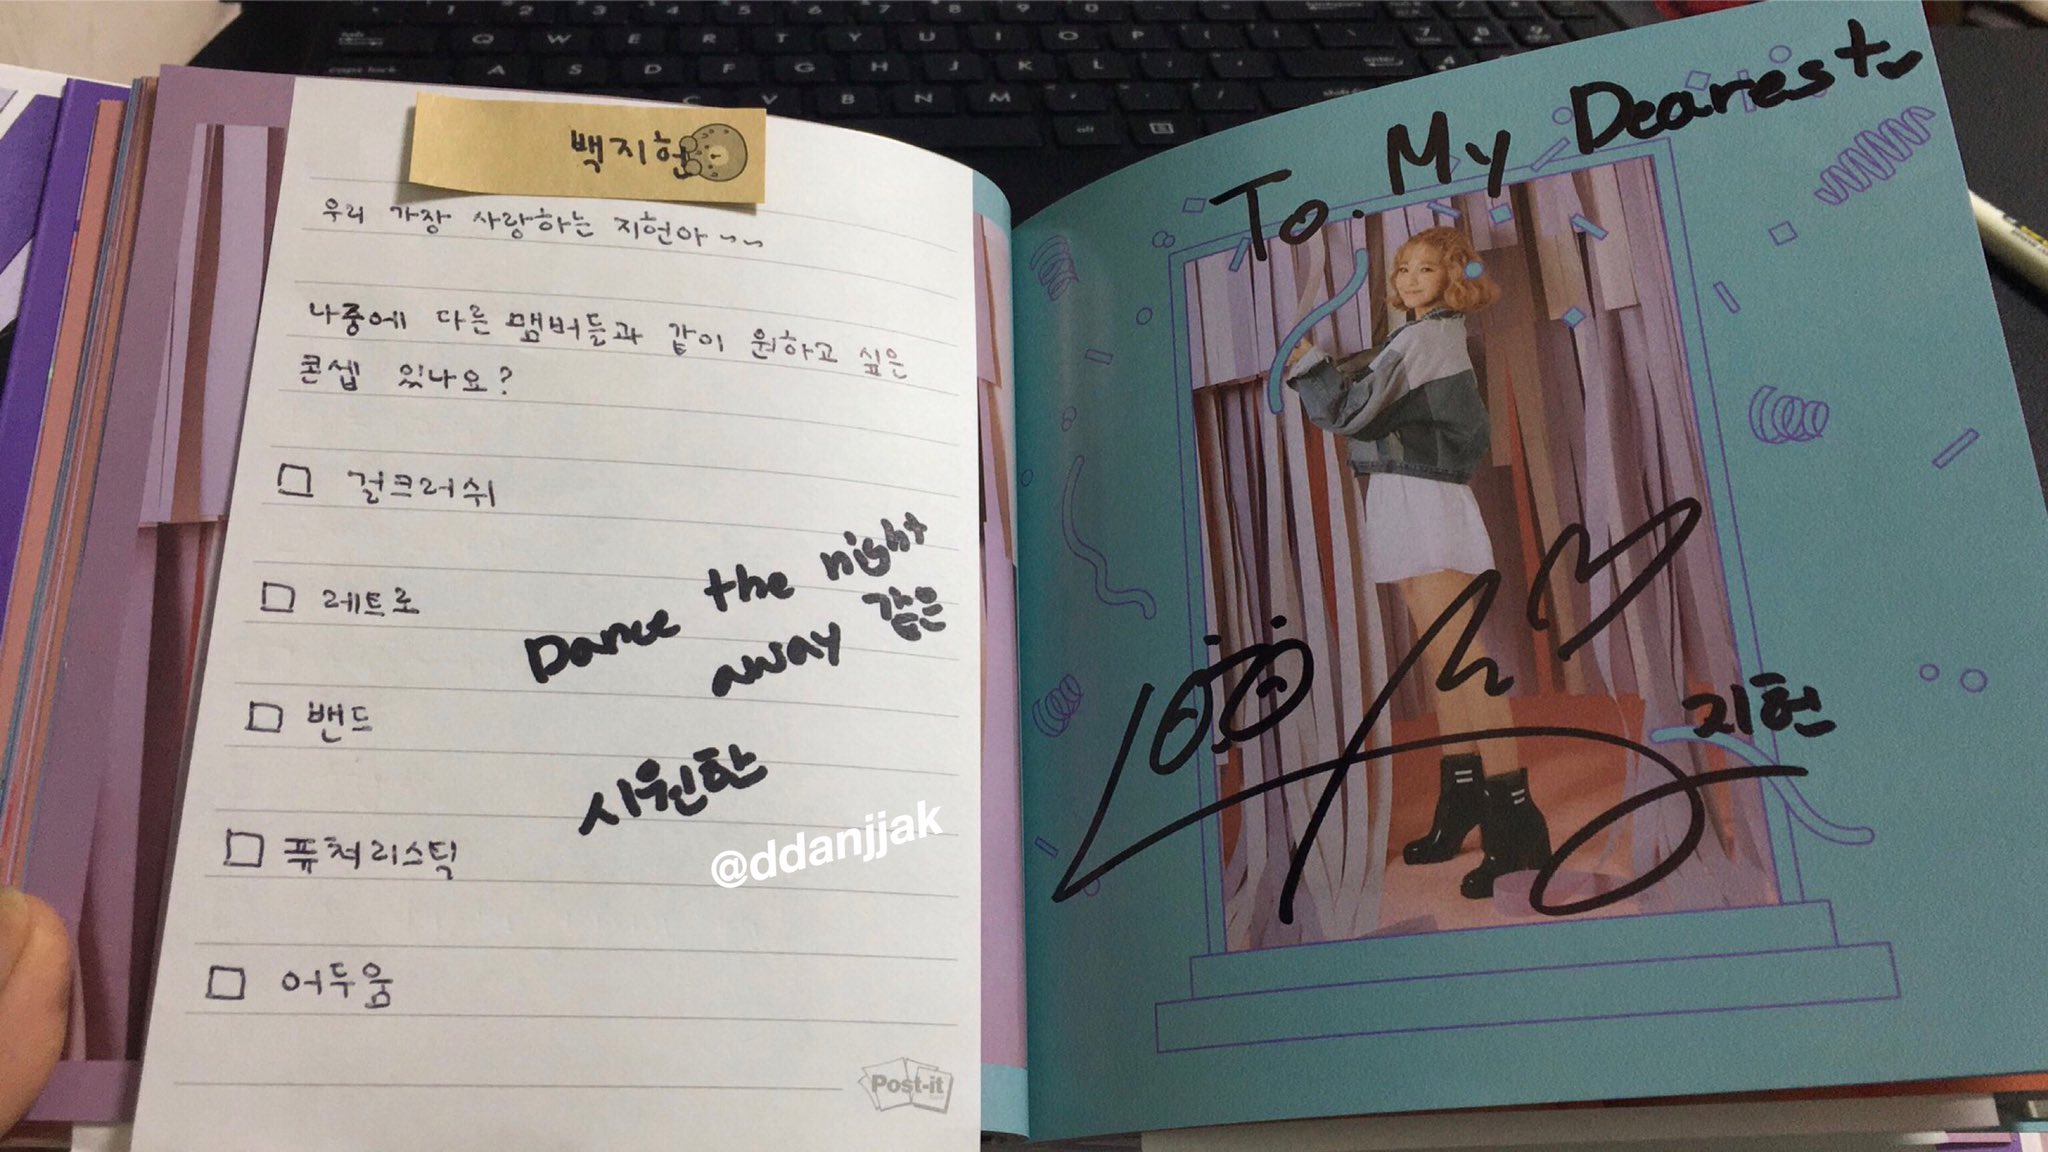 백지헌
우리 가장 사랑하는 지헌아~~
나중에 다른 멤버들과 같이 원하고 싶은
콘셉 있나요?
□ 걸크러쉬
□ 레트로
□ 밴드
□ 퓨처리스틱
□ 어두움
Dance the night
away 같은
시원한
@ddanjjak
Post-it
To. My Dearest
지헌